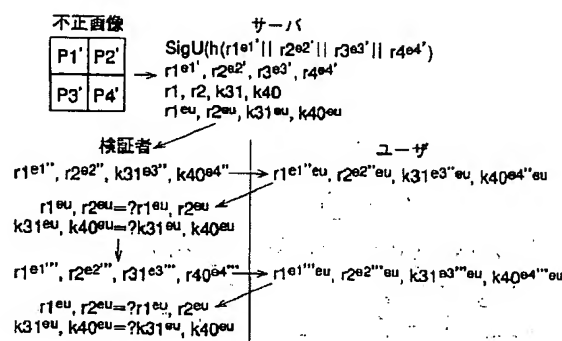 不正画像
サーバ
P1' P2'
P3' P4'
SigU(h(r1^e1'|| r2^e2'|| r3^e3'|| r4^e4')
r1^e1', r2^e2', r3^e3', r4^e4'
r1, r2, k31, k40
r1^eu, r2^eu, k31^eu, k40^eu
検証者
ユーザ
r1^e1'', r2^e2'', k31^e3'', k40^e4''
r1^e1''eu, r2^e2''eu, k31^e3''eu, k40^e4''eu
r1^eu, r2^eu=?r1^eu, r2^eu
k31^eu, k40^eu=?k31^eu, k40^eu
r1^e1''', r2^e2''', r31^e3''', r40^e4'''
r1^e1'''eu, r2^e2'''eu, k31^e3'''eu, k40^e4'''eu
r1^eu, r2^eu=?r1^eu, r2^eu
k31^eu, k40^eu=?k31^eu, k40^eu